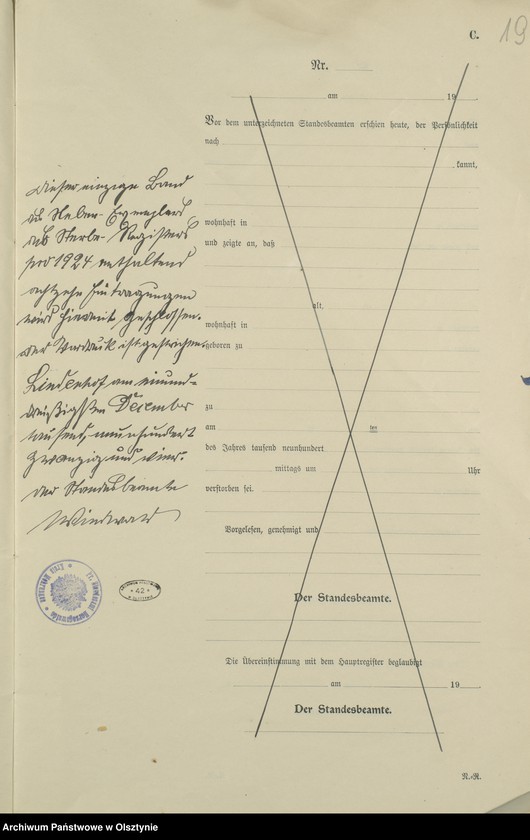 C.
19
Nr.
am 19
Vor dem unterzeichneten Standesbeamten erschien heute, der Persönlichkeit
nach
kannt,
Dieser einzige Band
des Neben-Exemplars
des Sterbe-Registers
pro 1924 enthaltend
achtzehn Eintragungen
wird hiermit geschlossen.
Der Vordruck ist gestrichen.
Lindenhof am einund-
dreißigsten December
tausend neunhundert
zwanzig und vier.
Der Standesbeamte
wohnhaft in
und zeigte an, daß
alt,
wohnhaft in
geboren zu
zu
am ten
des Jahres tausend neunhundert
mittags um Uhr
verstorben sei.
Vorgelesen, genehmigt und
Der Standesbeamte.
Die Übereinstimmung mit dem Hauptregister beglaubigt
am 19
Der Standesbeamte.
42
N.-R.
Archiwum Państwowe w Olsztynie